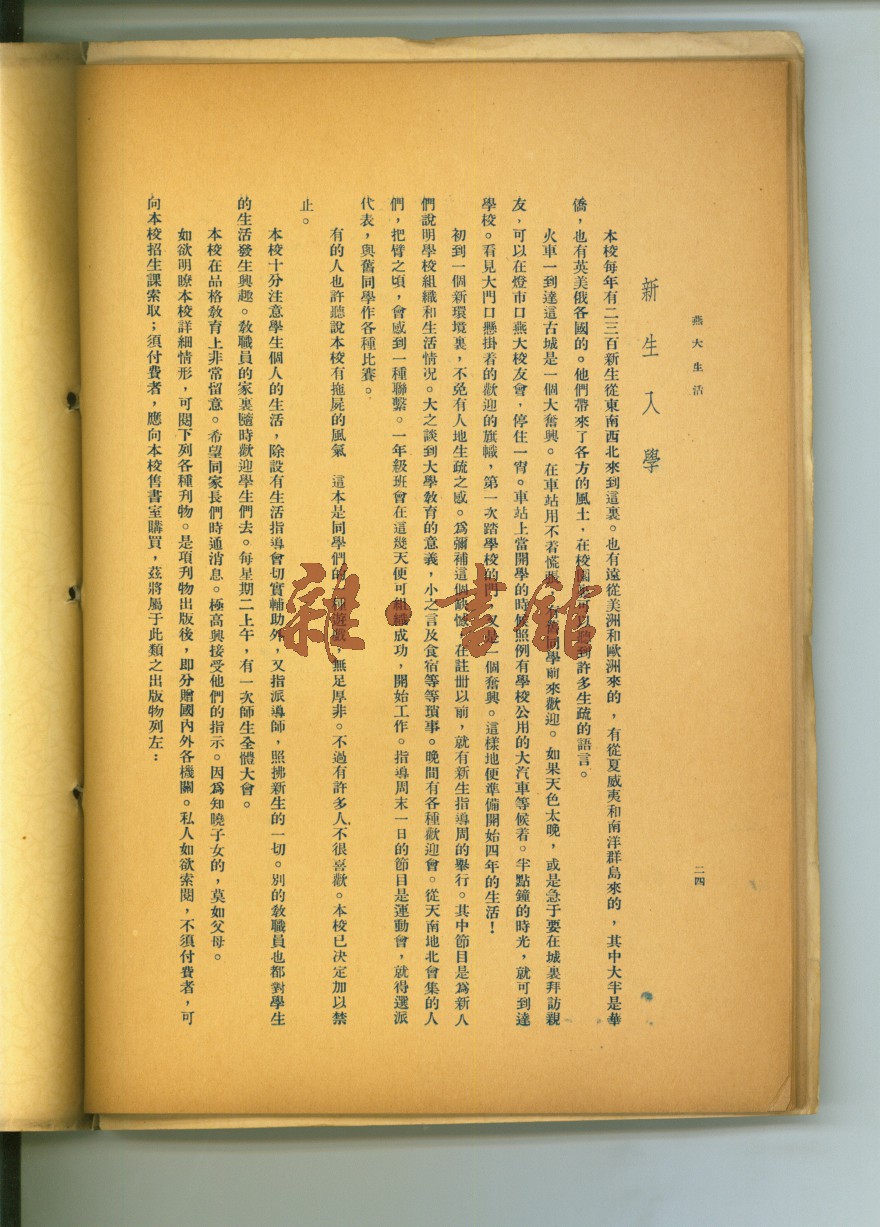 燕大生活
二四
新生入學
本校每年有二三百新生從東南西北來到這裏。也有遠從美洲和歐洲來的，有從夏威夷和南洋群島來的，其中大半是華
僑，也有英美俄各國的。他們帶來了各方的風土，在校園裏可以聽到許多生疏的語言。
火車一到達這古城是一個大奮興。在車站用不着慌張，有舊同學前來歡迎。如果天色太晚，或是急于要在城裏拜訪親
友，可以在燈市口燕大校友會，停住一宵。車站上當開學的時候照例有學校公用的大汽車等候着。半點鐘的時光，就可到達
學校。看見大門口懸掛着的歡迎的旗幟，第一次踏學校的門，又是一個奮興。這樣地便準備開始四年的生活！
初到一個新環境裏，不免有人地生疏之感。爲彌補這個缺憾，在註冊以前，就有新生指導周的舉行。其中節目是爲新人
們說明學校組織和生活情況。大之談到大學敎育的意義，小之言及食宿等等瑣事。晚間有各種歡迎會。從天南地北會集的人
們，把臂之頃，會感到一種聯繫。一年級班會在這幾天便可組織成功，開始工作。指導周末一日的節目是運動會，就得選派
代表，與舊同學作各種比賽。
有的人也許聽說本校有拖屍的風氣　這本是同學們的一種遊戲，無足厚非。不過有許多人不很喜歡。本校已決定加以禁
止。
本校十分注意學生個人的生活，除設有生活指導會切實輔助外，又指派導師，照拂新生的一切。別的敎職員也都對學生
的生活發生興趣。敎職員的家裏隨時歡迎學生們去。每星期二上午，有一次師生全體大會。
本校在品格敎育上非常留意。希望同家長們時通消息。極高興接受他們的指示。因爲知曉子女的，莫如父母。
如欲明瞭本校詳細情形，可閱下列各種刋物。是項刋物出版後，即分贈國內外各機關。私人如欲索閱，不須付費者，可
向本校招生課索取；須付費者，應向本校售書室購買，茲將屬于此類之出版物列左：
雜·書館